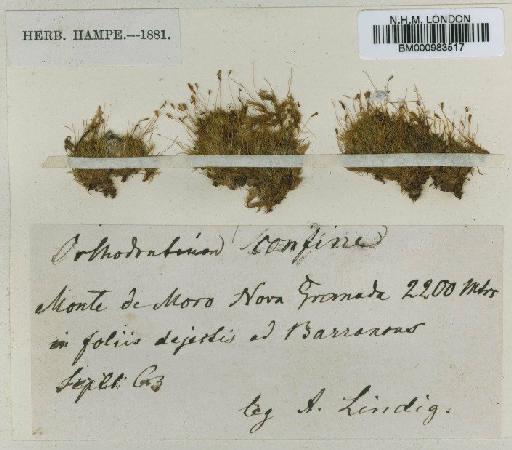 HERB. HAMPE.—1881.
N.H.M. LONDON
BM000983517
Orthodontium confine
Monte de Moro Nova Granada 2200 Mtrs
in foliis dejectis ad Barrancas
Septbr 63
leg A. Lindig.